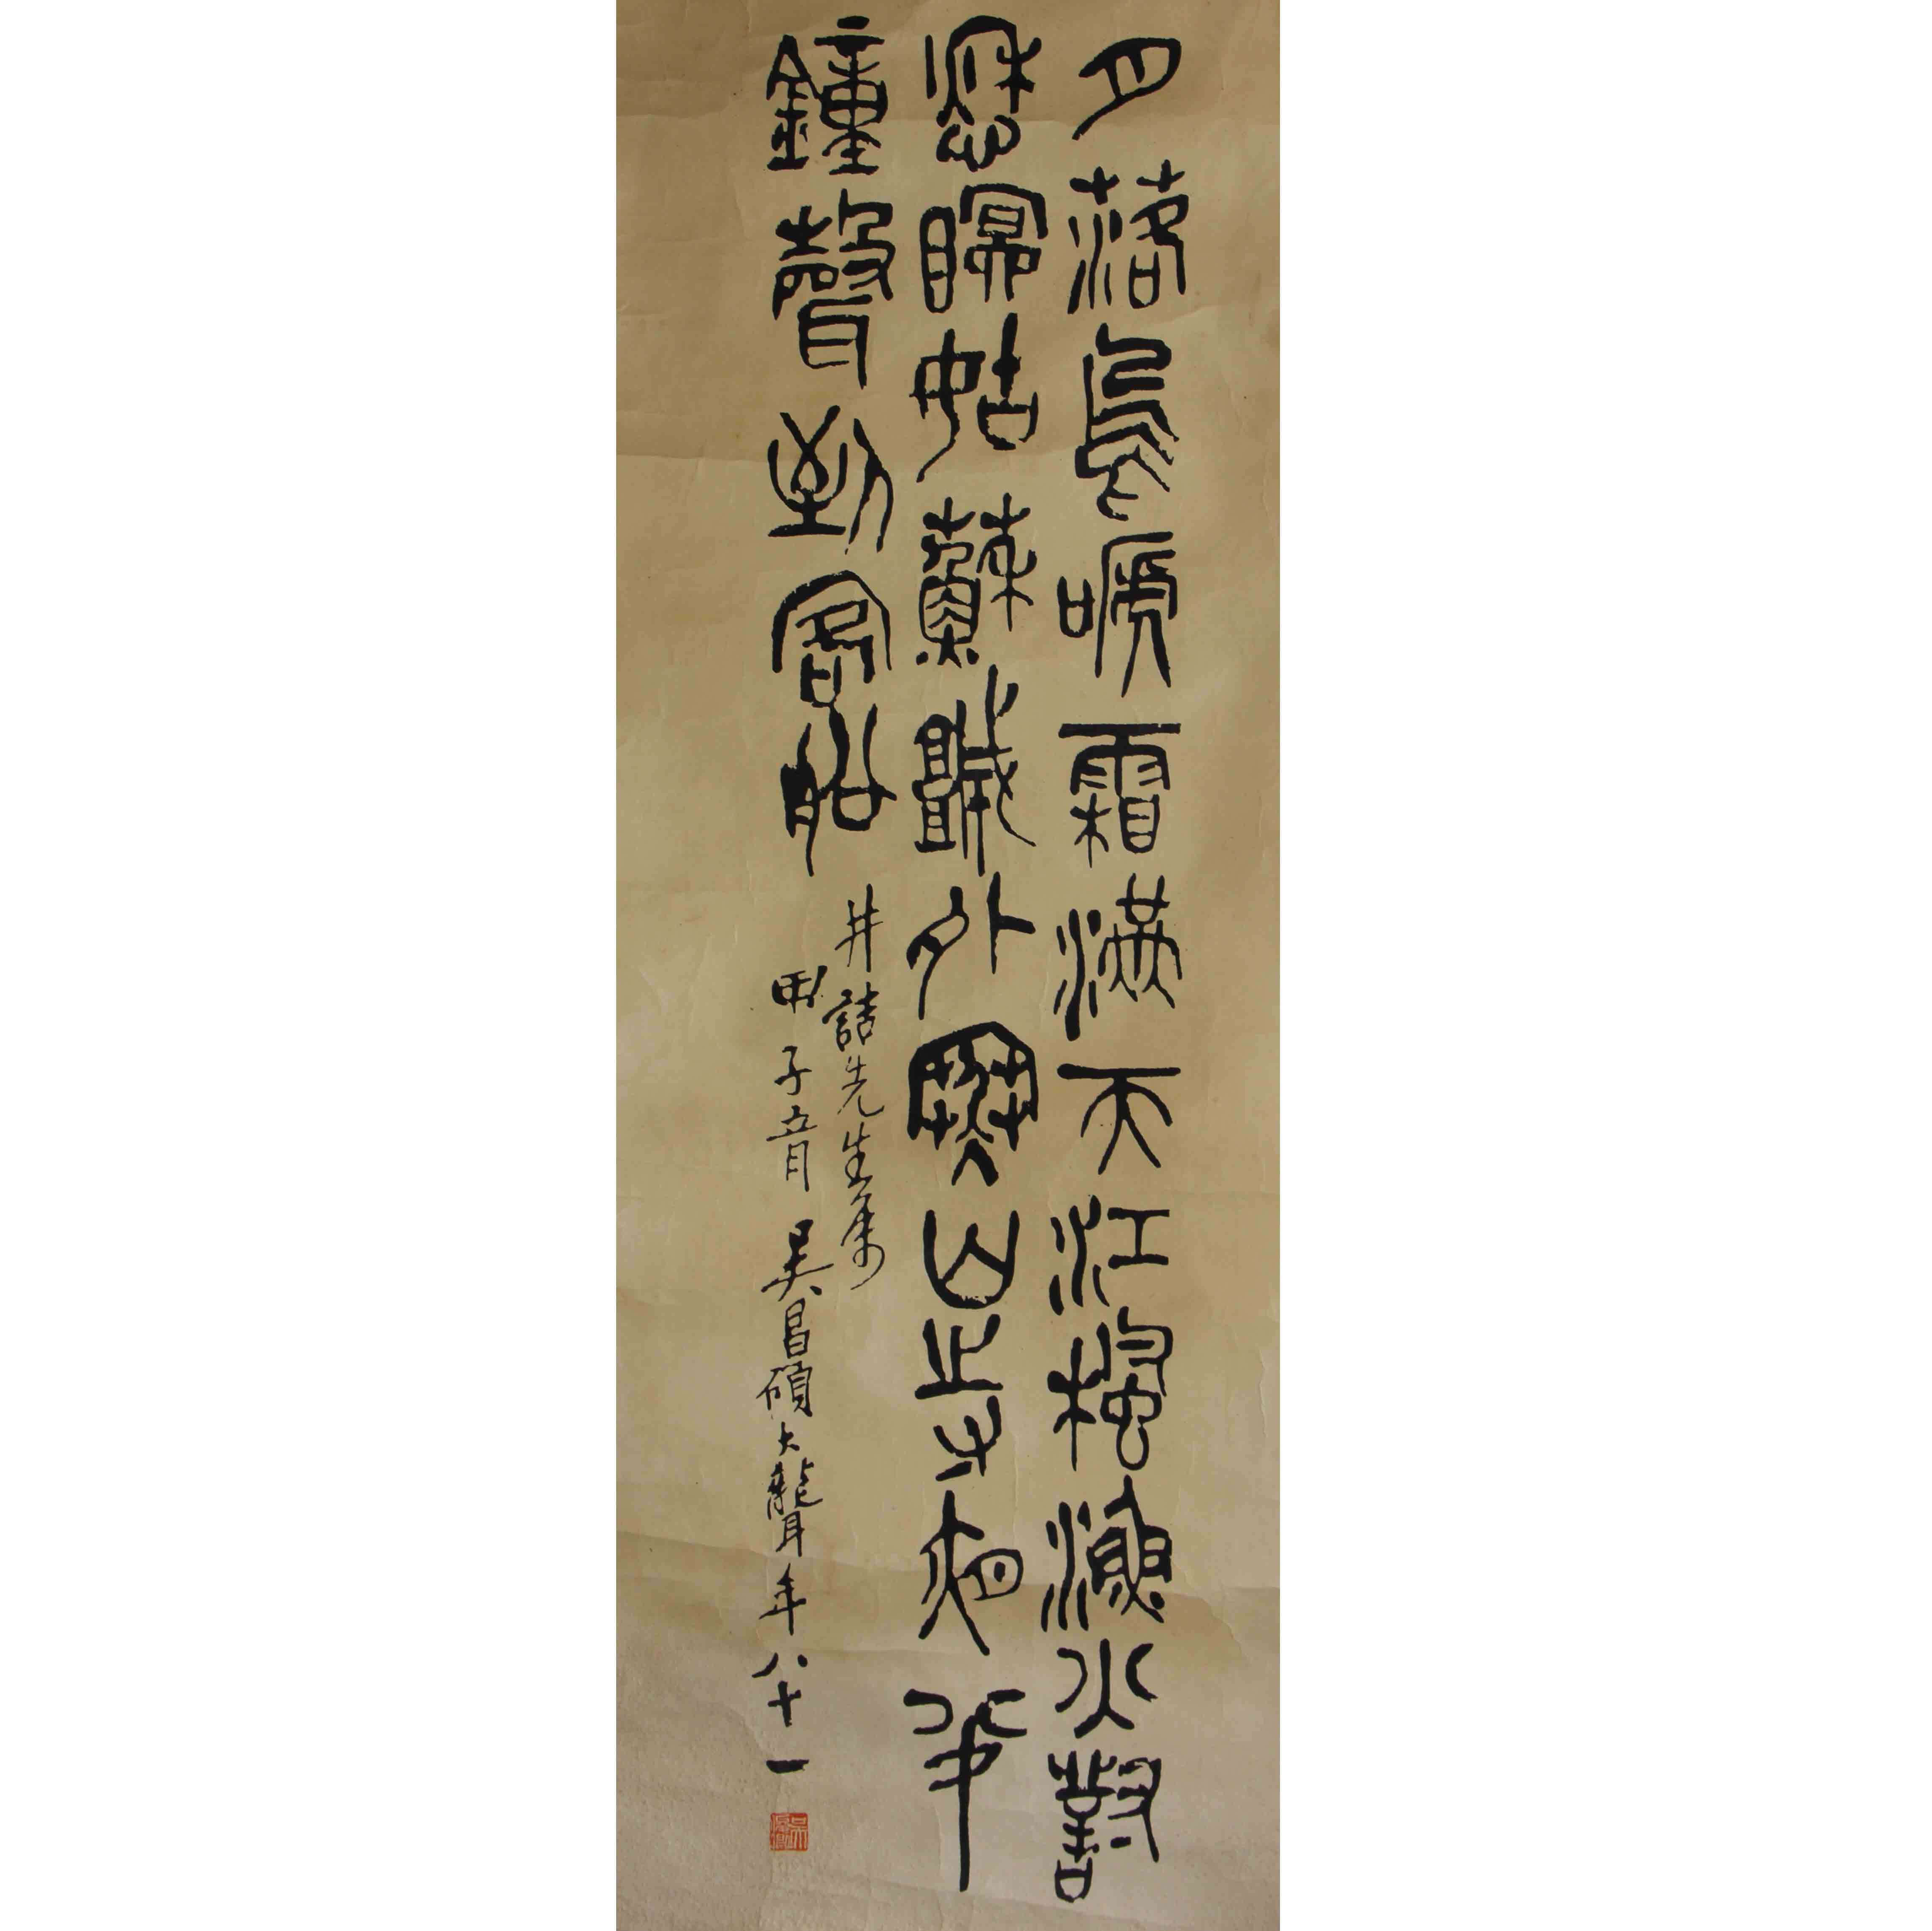 月落烏嗁霜滿天江楓漁火對
愁瞑姑蘇城外寒山寺夜半
鐘聲到客船
井詰先生属
甲子 吴昌碩大聾年八十一